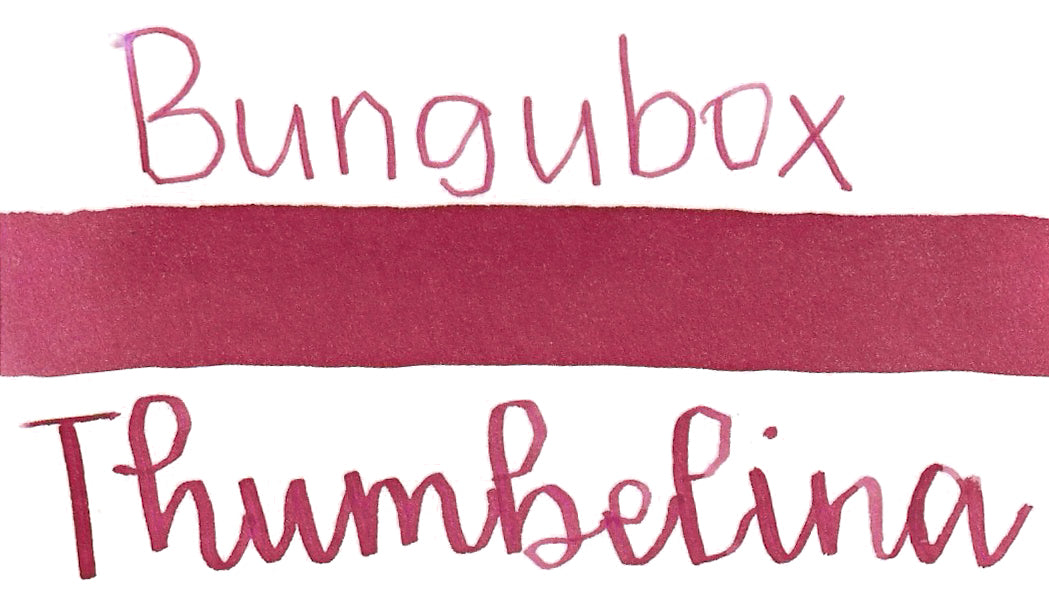 Bungubox
Thumbelina